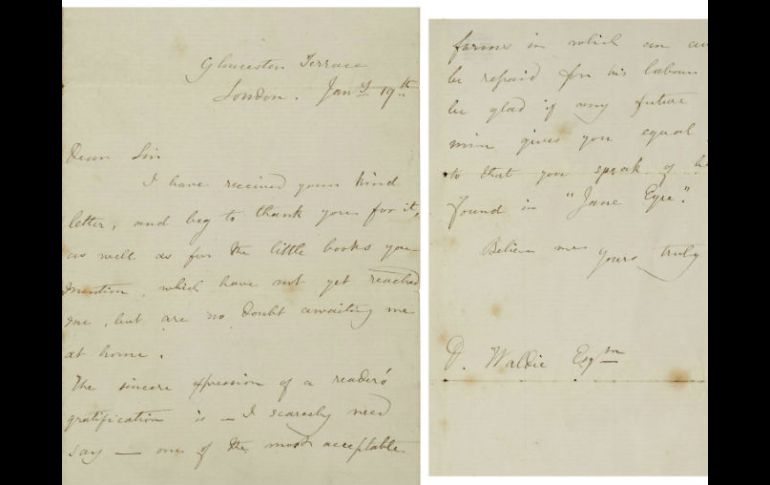 Gloucester Terrace
London. Jany 19th
Dear Sir
I have received your kind
letter, and beg to thank you for it,
as well as for the little books you
mention, which have not yet reached
me, but are no doubt awaiting me
at home.
The sincere expression of a reader's
gratification is — I scarcely need
say — one of the most acceptable
forms in which an au
be repaid for his labour
be glad if any future
mine gives you equal
to that you speak of h
found in "Jane Eyre".
Believe me
yours truly
D. Waldie Esqre